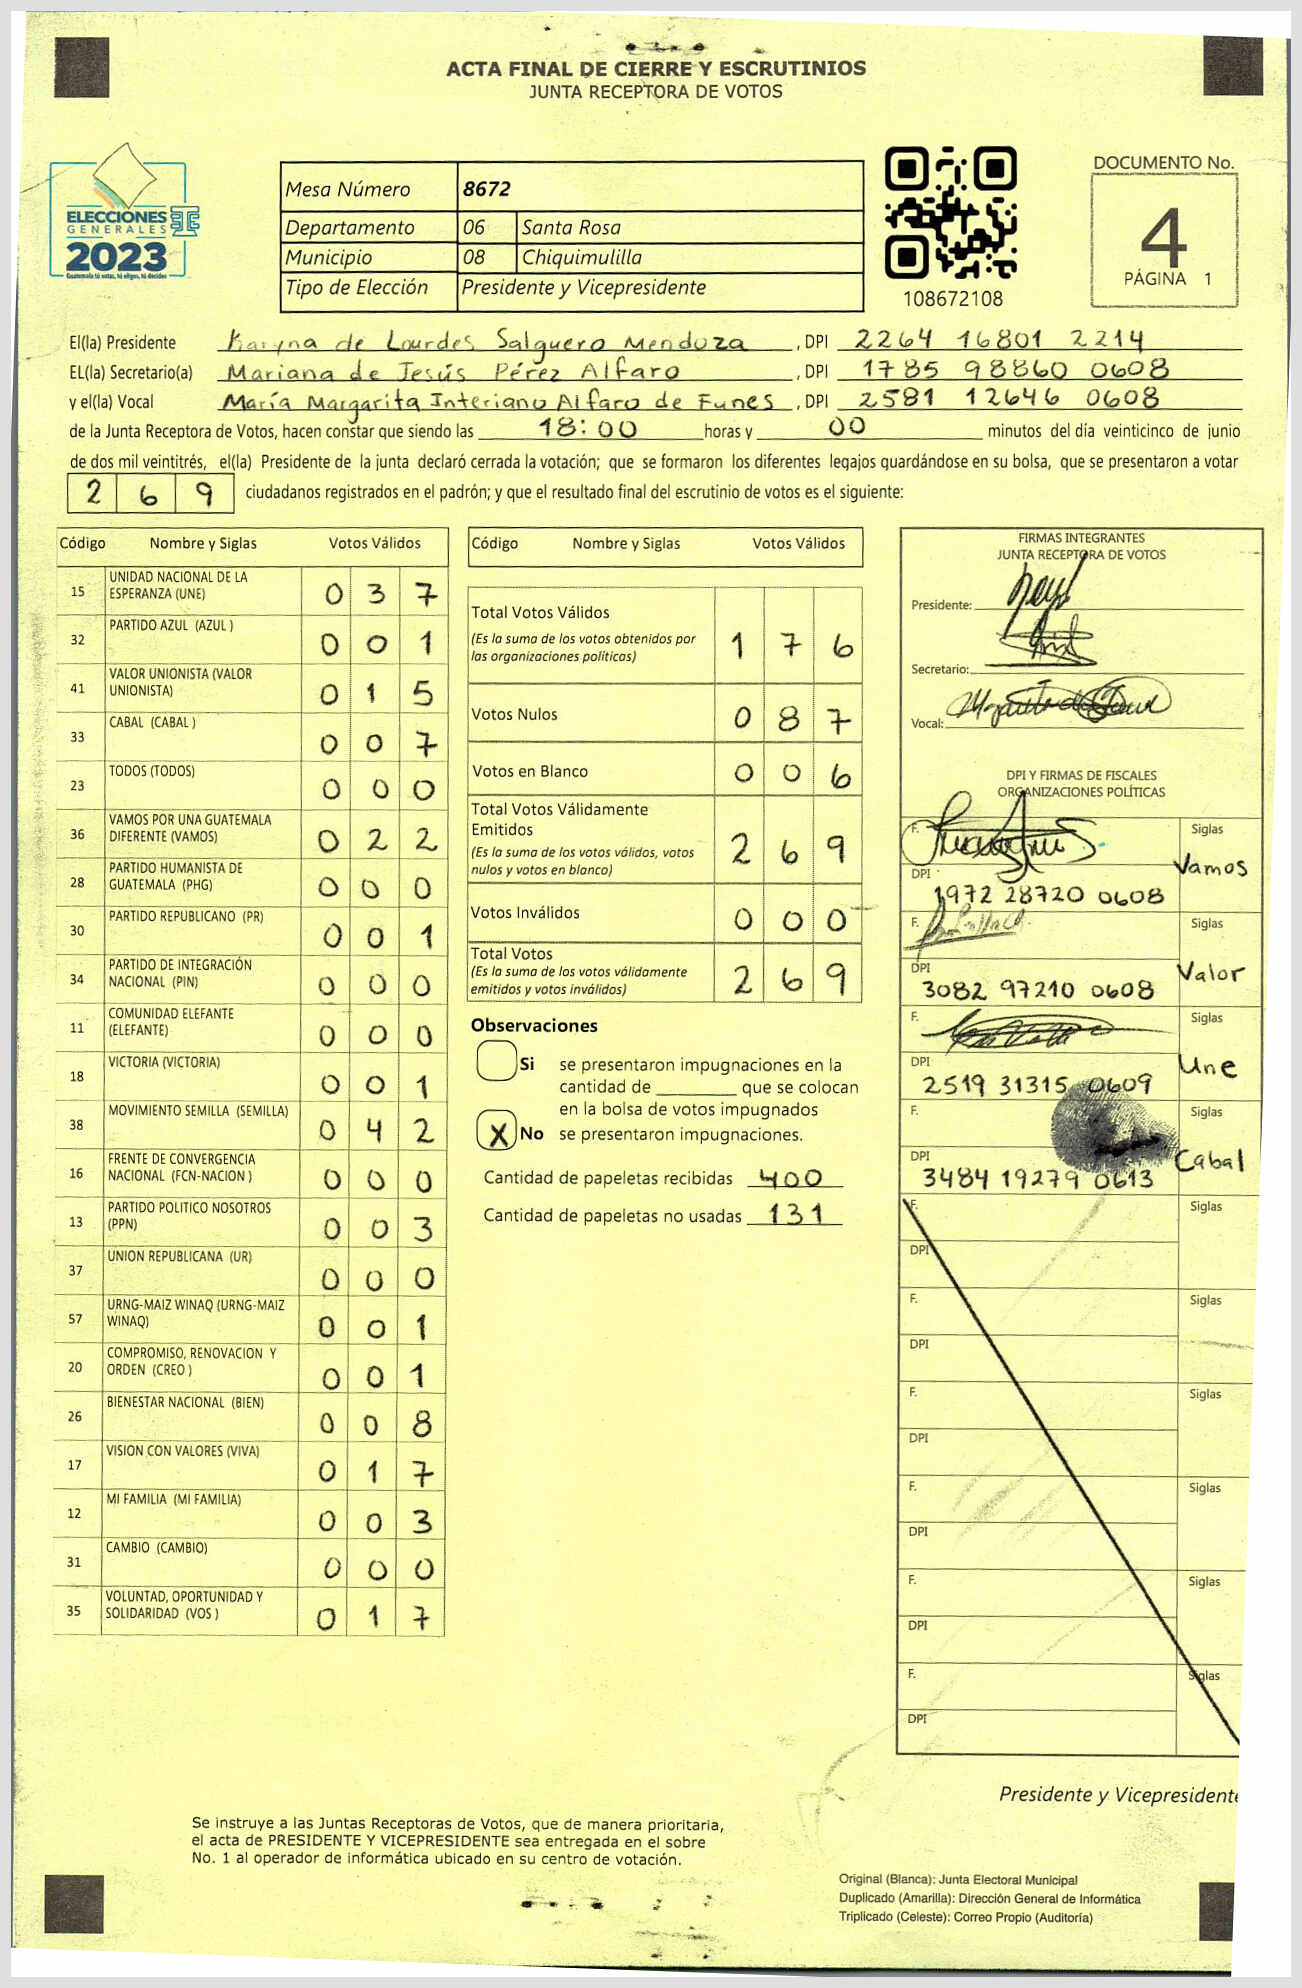 ACTA FINAL DE CIERRE Y ESCRUTINIOS
JUNTA RECEPTORA DE VOTOS
ELECCIONES
GENERALES
2023
Guatemala tú votas, tú eliges, tú decides
Mesa Número 8672
Departamento 06 Santa Rosa
Municipio 08 Chiquimulilla
Tipo de Elección Presidente y Vicepresidente
108672108
DOCUMENTO No.
4
PÁGINA 1
El(la) Presidente Karyna de Lourdes Salguero Mendoza , DPI 2264 16801 2214
EL(la) Secretario(a) Mariana de Jesús Pérez Alfaro , DPI 1785 98860 0608
y el(la) Vocal María Margarita Interiano Alfaro de Funes , DPI 2581 12646 0608
de la Junta Receptora de Votos, hacen constar que siendo las 18:00 horas y 00 minutos del día veinticinco de junio
de dos mil veintitrés, el(la) Presidente de la junta declaró cerrada la votación; que se formaron los diferentes legajos guardándose en su bolsa, que se presentaron a votar
269 ciudadanos registrados en el padrón; y que el resultado final del escrutinio de votos es el siguiente:
Código Nombre y Siglas Votos Válidos
15 UNIDAD NACIONAL DE LA
ESPERANZA (UNE) 0 3 7
32 PARTIDO AZUL (AZUL ) 0 0 1
41 VALOR UNIONISTA (VALOR
UNIONISTA) 0 1 5
33 CABAL (CABAL ) 0 0 7
23 TODOS (TODOS) 0 0 0
36 VAMOS POR UNA GUATEMALA
DIFERENTE (VAMOS) 0 2 2
28 PARTIDO HUMANISTA DE
GUATEMALA (PHG) 0 0 0
30 PARTIDO REPUBLICANO (PR) 0 0 1
34 PARTIDO DE INTEGRACIÓN
NACIONAL (PIN) 0 0 0
11 COMUNIDAD ELEFANTE
(ELEFANTE) 0 0 0
18 VICTORIA (VICTORIA) 0 0 1
38 MOVIMIENTO SEMILLA (SEMILLA) 0 4 2
16 FRENTE DE CONVERGENCIA
NACIONAL (FCN-NACION ) 0 0 0
13 PARTIDO POLITICO NOSOTROS
(PPN) 0 0 3
37 UNION REPUBLICANA (UR) 0 0 0
57 URNG-MAIZ WINAQ (URNG-MAIZ
WINAQ) 0 0 1
20 COMPROMISO, RENOVACION Y
ORDEN (CREO ) 0 0 1
26 BIENESTAR NACIONAL (BIEN) 0 0 8
17 VISION CON VALORES (VIVA) 0 1 7
12 MI FAMILIA (MI FAMILIA) 0 0 3
31 CAMBIO (CAMBIO) 0 0 0
35 VOLUNTAD, OPORTUNIDAD Y
SOLIDARIDAD (VOS ) 0 1 7
Código Nombre y Siglas Votos Válidos
Total Votos Válidos
(Es la suma de los votos obtenidos por
las organizaciones políticas) 1 7 6
Votos Nulos 0 8 7
Votos en Blanco 0 0 6
Total Votos Válidamente
Emitidos
(Es la suma de los votos válidos, votos
nulos y votos en blanco) 2 6 9
Votos Inválidos 0 0 0
Total Votos
(Es la suma de los votos válidamente
emitidos y votos inválidos) 2 6 9
Observaciones
Si se presentaron impugnaciones en la
cantidad de ________ que se colocan
en la bolsa de votos impugnados
X No se presentaron impugnaciones.
Cantidad de papeletas recibidas 400
Cantidad de papeletas no usadas 131
FIRMAS INTEGRANTES
JUNTA RECEPTORA DE VOTOS
Presidente:
Secretario:
Vocal:
DPI Y FIRMAS DE FISCALES
ORGANIZACIONES POLÍTICAS
F. Siglas
Vamos
DPI
1972 28720 0608
F. Siglas
DPI Valor
3082 97210 0608
F. Siglas
DPI Une
2519 31315 0609
F. Siglas
DPI Cabal
3484 19279 0613
F. Siglas
DPI
F. Siglas
DPI
F. Siglas
DPI
F. Siglas
DPI
F. Siglas
DPI
F. Siglas
DPI
Presidente y Vicepresidente
Se instruye a las Juntas Receptoras de Votos, que de manera prioritaria,
el acta de PRESIDENTE Y VICEPRESIDENTE sea entregada en el sobre
No. 1 al operador de informática ubicado en su centro de votación.
Original (Blanca): Junta Electoral Municipal
Duplicado (Amarilla): Dirección General de Informática
Triplicado (Celeste): Correo Propio (Auditoría)